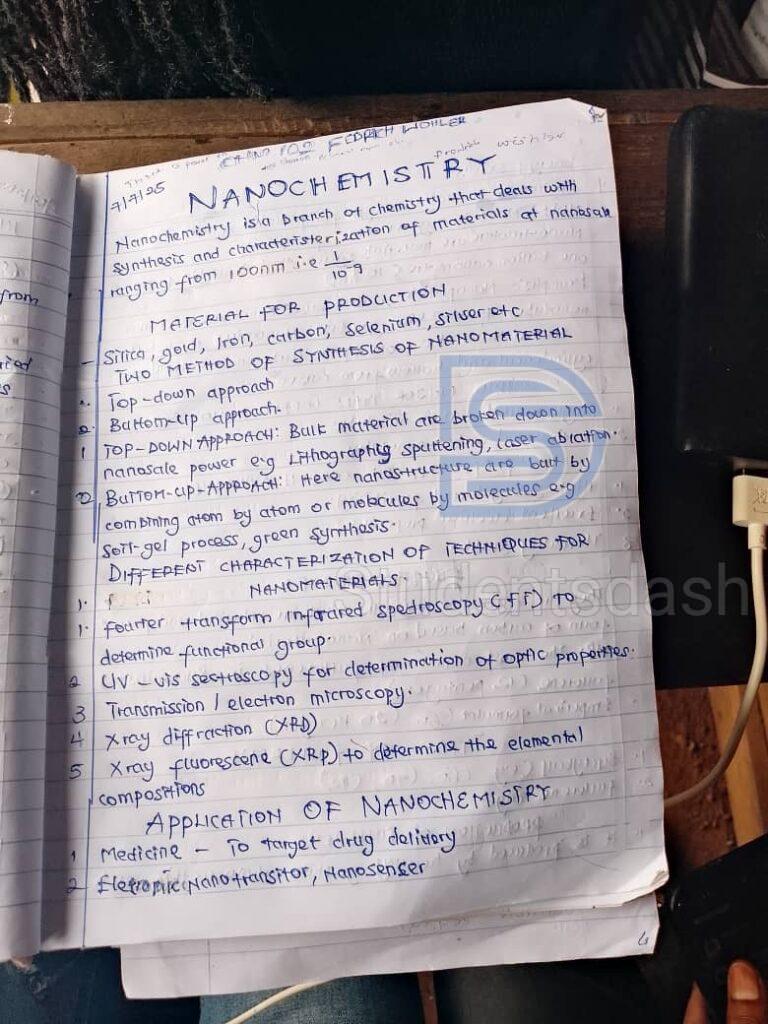 CHAND FOD FEDRICH WOHLER
7/7/25
NANOCHEMISTRY
Nanochemistry is a branch of chemistry that deals with
synthesis and characteristerization of materials at nanosale
ranging from 100nm i.e 1/10-9
MATERIAL FOR PRODUCTION
- Silica, gold, Iron, carbon, selenium, silver etc
TWO METHOD OF SYNTHESIS OF NANOMATERIAL
1. Top-down approach
2. Buttom-up approach.
1 TOP-DOWN APPROACH: Bulk material are broken down into
nanosale power e.g Lithography sputtening, Laser ablation.
2 BUTTOM-UP-APPROACH: Here nanostructure are built by
combining atom by atom or molecules by molecules e.g
soil-gel process, green synthesis.
DIFFERENT CHARACTERIZATION OF TECHNIQUES FOR
NANOMATERIALS.
1.
1. fourter transform infrared spectroscopy (FT) to
determine functional group.
2 UV-vis sectroscopy for determination of optic properties.
3 Transmission / electron microscopy.
4 Xray diffraction (XRD)
5 Xray fluorescene (XRP) to determine the elemental
compositions
APPLICATION OF NANOCHEMISTRY
1 Medicine - To target drug delivery
2 Eletronic Nanotransitor, Nanosenser
from
Studentsdash